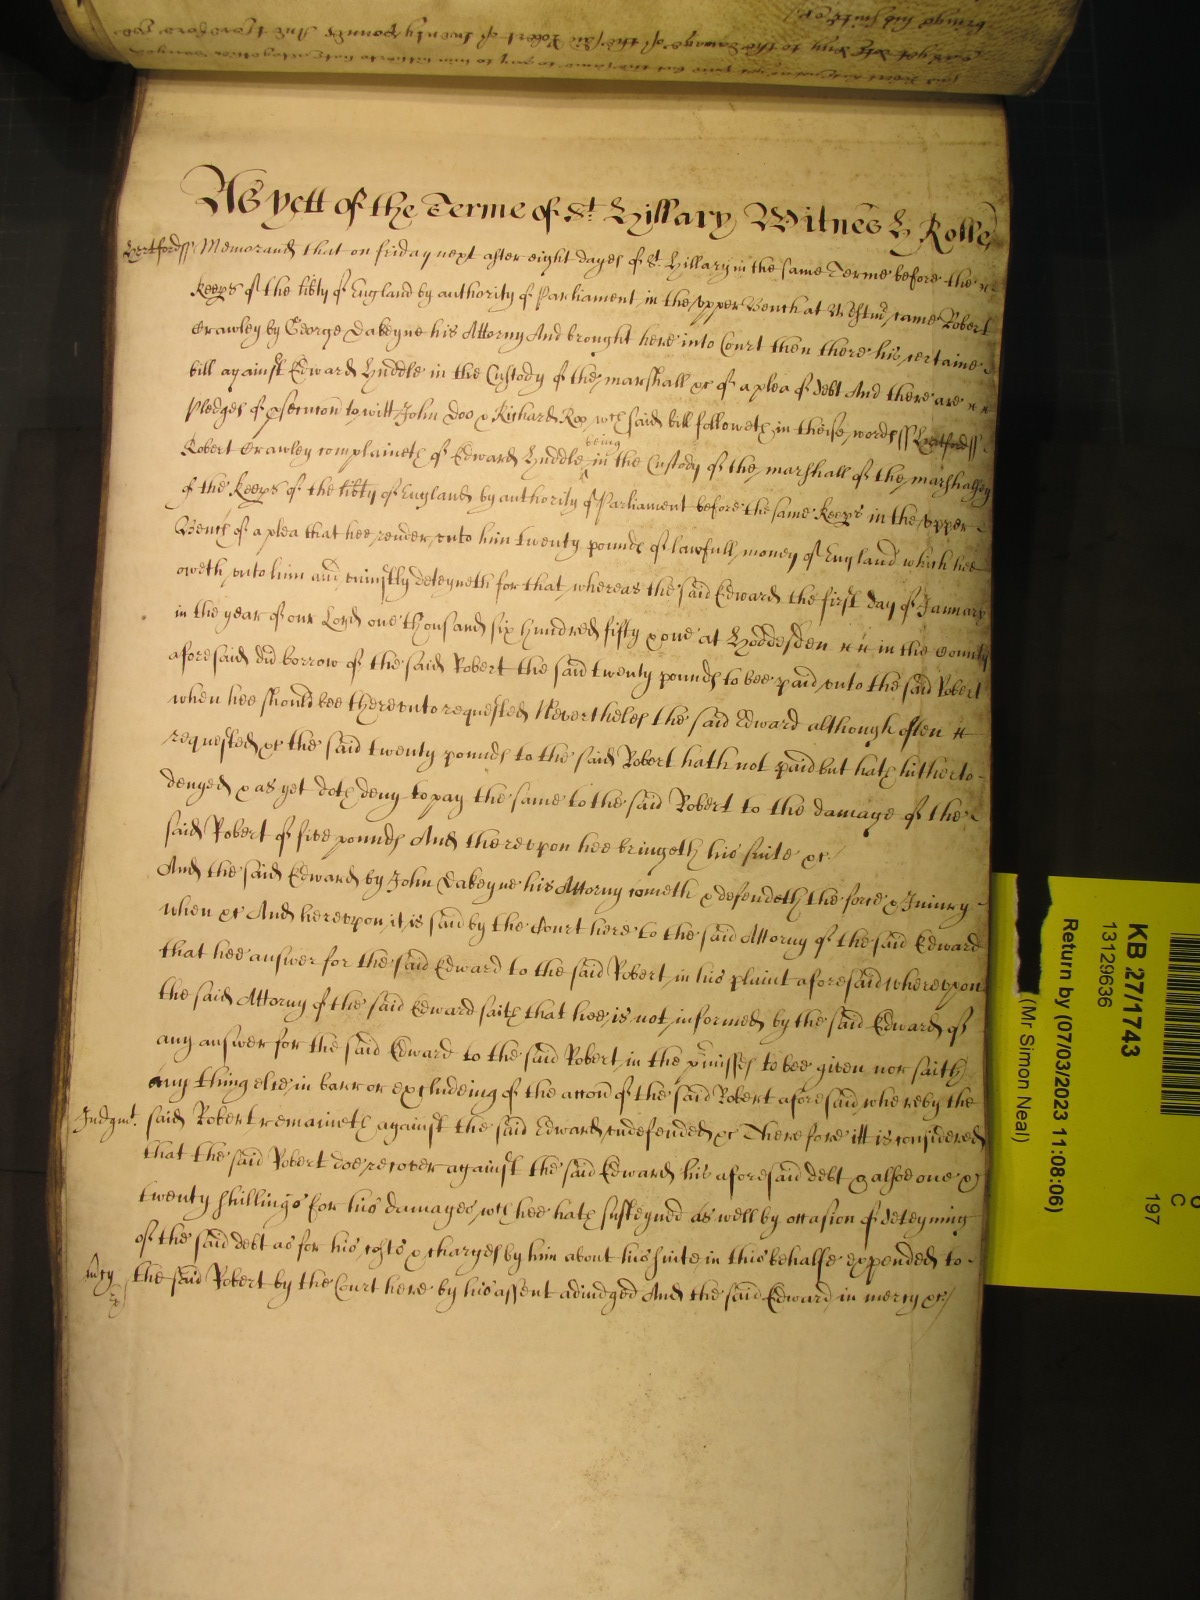 As yett of the Terme of St. Hillary Witnes H Rolle
Hertford ss Memorand that on friday next after eight dayes of St. Hillary in the same Terme before the
Keeps of the libty of England by authority of Parliament in the upper Bench at Westmr came Robert
Crawley by George Dakeyne his Attorny And brought here into Court then there his certaine
bill against Edward Huddle in the Custody of the marshall &c of a plea of debt And there are
Pledges of psecucon to witt John Doo & Richard Roo wch said bill followeth in theise words ss Hertford ss
Robert Crawley complaineth of Edward Huddle being in the Custody of the marshall of the marshallsey
of the Keeps of the libty of England by authority of Parliament before the same Keeps in the upper
Bench of a plea that hee render unto him twenty pounds of lawfull money of England which hee
oweth unto him and uniustly deteyneth for that whereas the said Edward the first day of January
in the year of our Lord one thousand six hundred fifty & one at Hoddesden in the County
aforesaid did borrow of the said Robert the said twenty pounds to bee paid unto the said Robert
when hee should bee thereunto requested Neverthelesse the said Edward although often
requested &c the said twenty pounds to the said Robert hath not paid but hath hitherto
denyed & as yet doth deny to pay the same to the said Robert to the damage of the
said Robert of five pounds And thereupon hee bringeth his suite &c
And the said Edward by John Dakeyne his Attorny cometh & defendeth the force & Iniury
when &c And hereupon it is said by the Court here to the said Attorny of the said Edward
that hee answer for the said Edward to the said Robert in his plaint aforesaid whereupon
the said Attorny of the said Edward saith that hee is not informed by the said Edward of
any answer for the said Edward to the said Robert in the pmisses to bee given nor saith
any thing else in barr or excludeing of the accon of the said Robert aforesaid whereby the
Judgmt. said Robert remaineth against the said Edward undefended &c Therefore itt is considered
that the said Robert doe recover against the said Edward his aforesaid debt & alsoe one &
twenty shillings for his damages wch hee hath susteyned as well by occasion of deteyning
of the said debt as for his costs & charges by him about his suite in this behalfe expended to
mcy the said Robert by the Court here by his assent adiudged And the said Edward in mercy &c
KB 27/1743
13129636
Return by (07/03/2023 11:08:06)
(Mr Simon Neal)
C
197